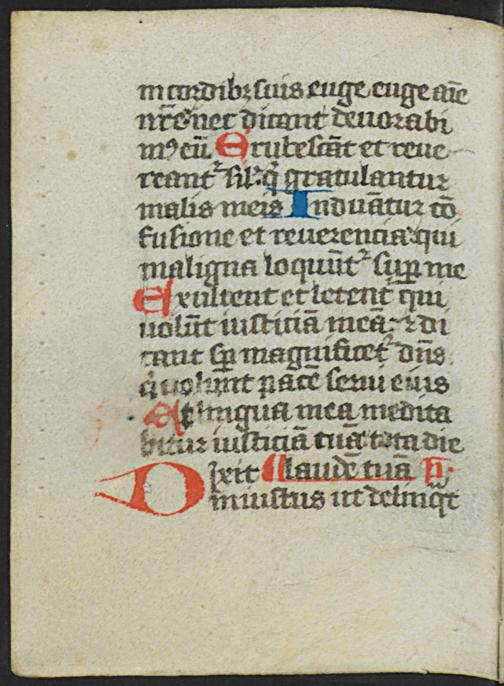 in cordibꝫ suis euge euge aīe
nr̄e nec dicant deuorabi
mꝰ eū Erubescāt et reue
reantᷣ sil᷑ q̄ gratulantur
malis meis Induātur cō
fusione et reuerencia qui
maligna loqūntᷣ suꝑ me
Exultent et letentᷣ qui
uolūt iusticiā meā ⁊ di
cant sꝑ magnificetᷣ dn̄s
q̇ uolunt pacē serui eius
Et lingua mea medita
bitur iusticiā tuā tota die
Dixit laudē tuā pͣ
iniustus ut delinq̄t